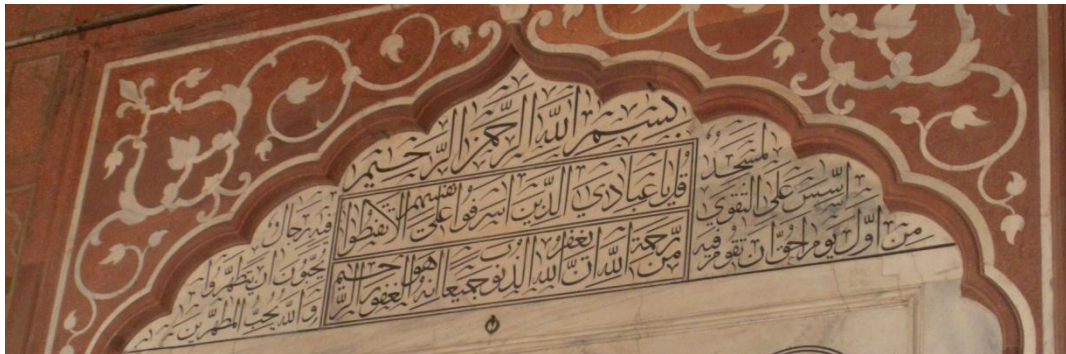 بسم الله الرحمن الرحيم
قل يا عبادي الذين اسرفوا على انفسهم لا تقنطوا
من رحمة الله ان الله يغفر الذنوب جميعا انه هو الغفور الرحيم
لمسجد
اسس على التقوى
من اول يوم احق ان تقوم فيه
فيه رجال
يحبون ان يتطهروا
والله يحب المطهرين